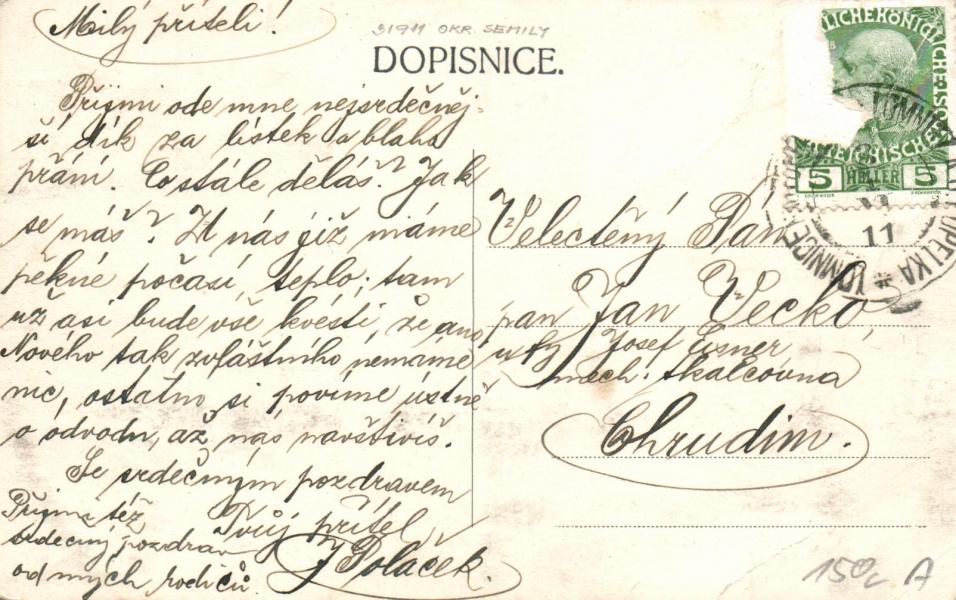 Milý příteli!
51911 OKR. SEMILY
DOPISNICE.
Přijmi ode mne nejsrdečněj-
ší dík za lístek a blaho
přání. Co stále děláš? Jak
se máš? U nás již máme
pěkné počasí, teplo; tam
už asi bude vše kvésti, že ano,
Nového tak zvláštního nemáme
nic, ostatno si povíme ústně
o odvodu, až nás navštívíš.
Se srdečným pozdravem
Tvůj přítel
J Poláček.
Přijma též
srdečný pozdrav
od mých rodičů.
Velectěný Pán
pan Jan Vecko
u fy Josef Eisner
mech. tkalcovna
Chrudim.
LICHE KÖNIGLICHE
REICHISCHE
5 HELLER 5
LOMNICE
11
150,- A